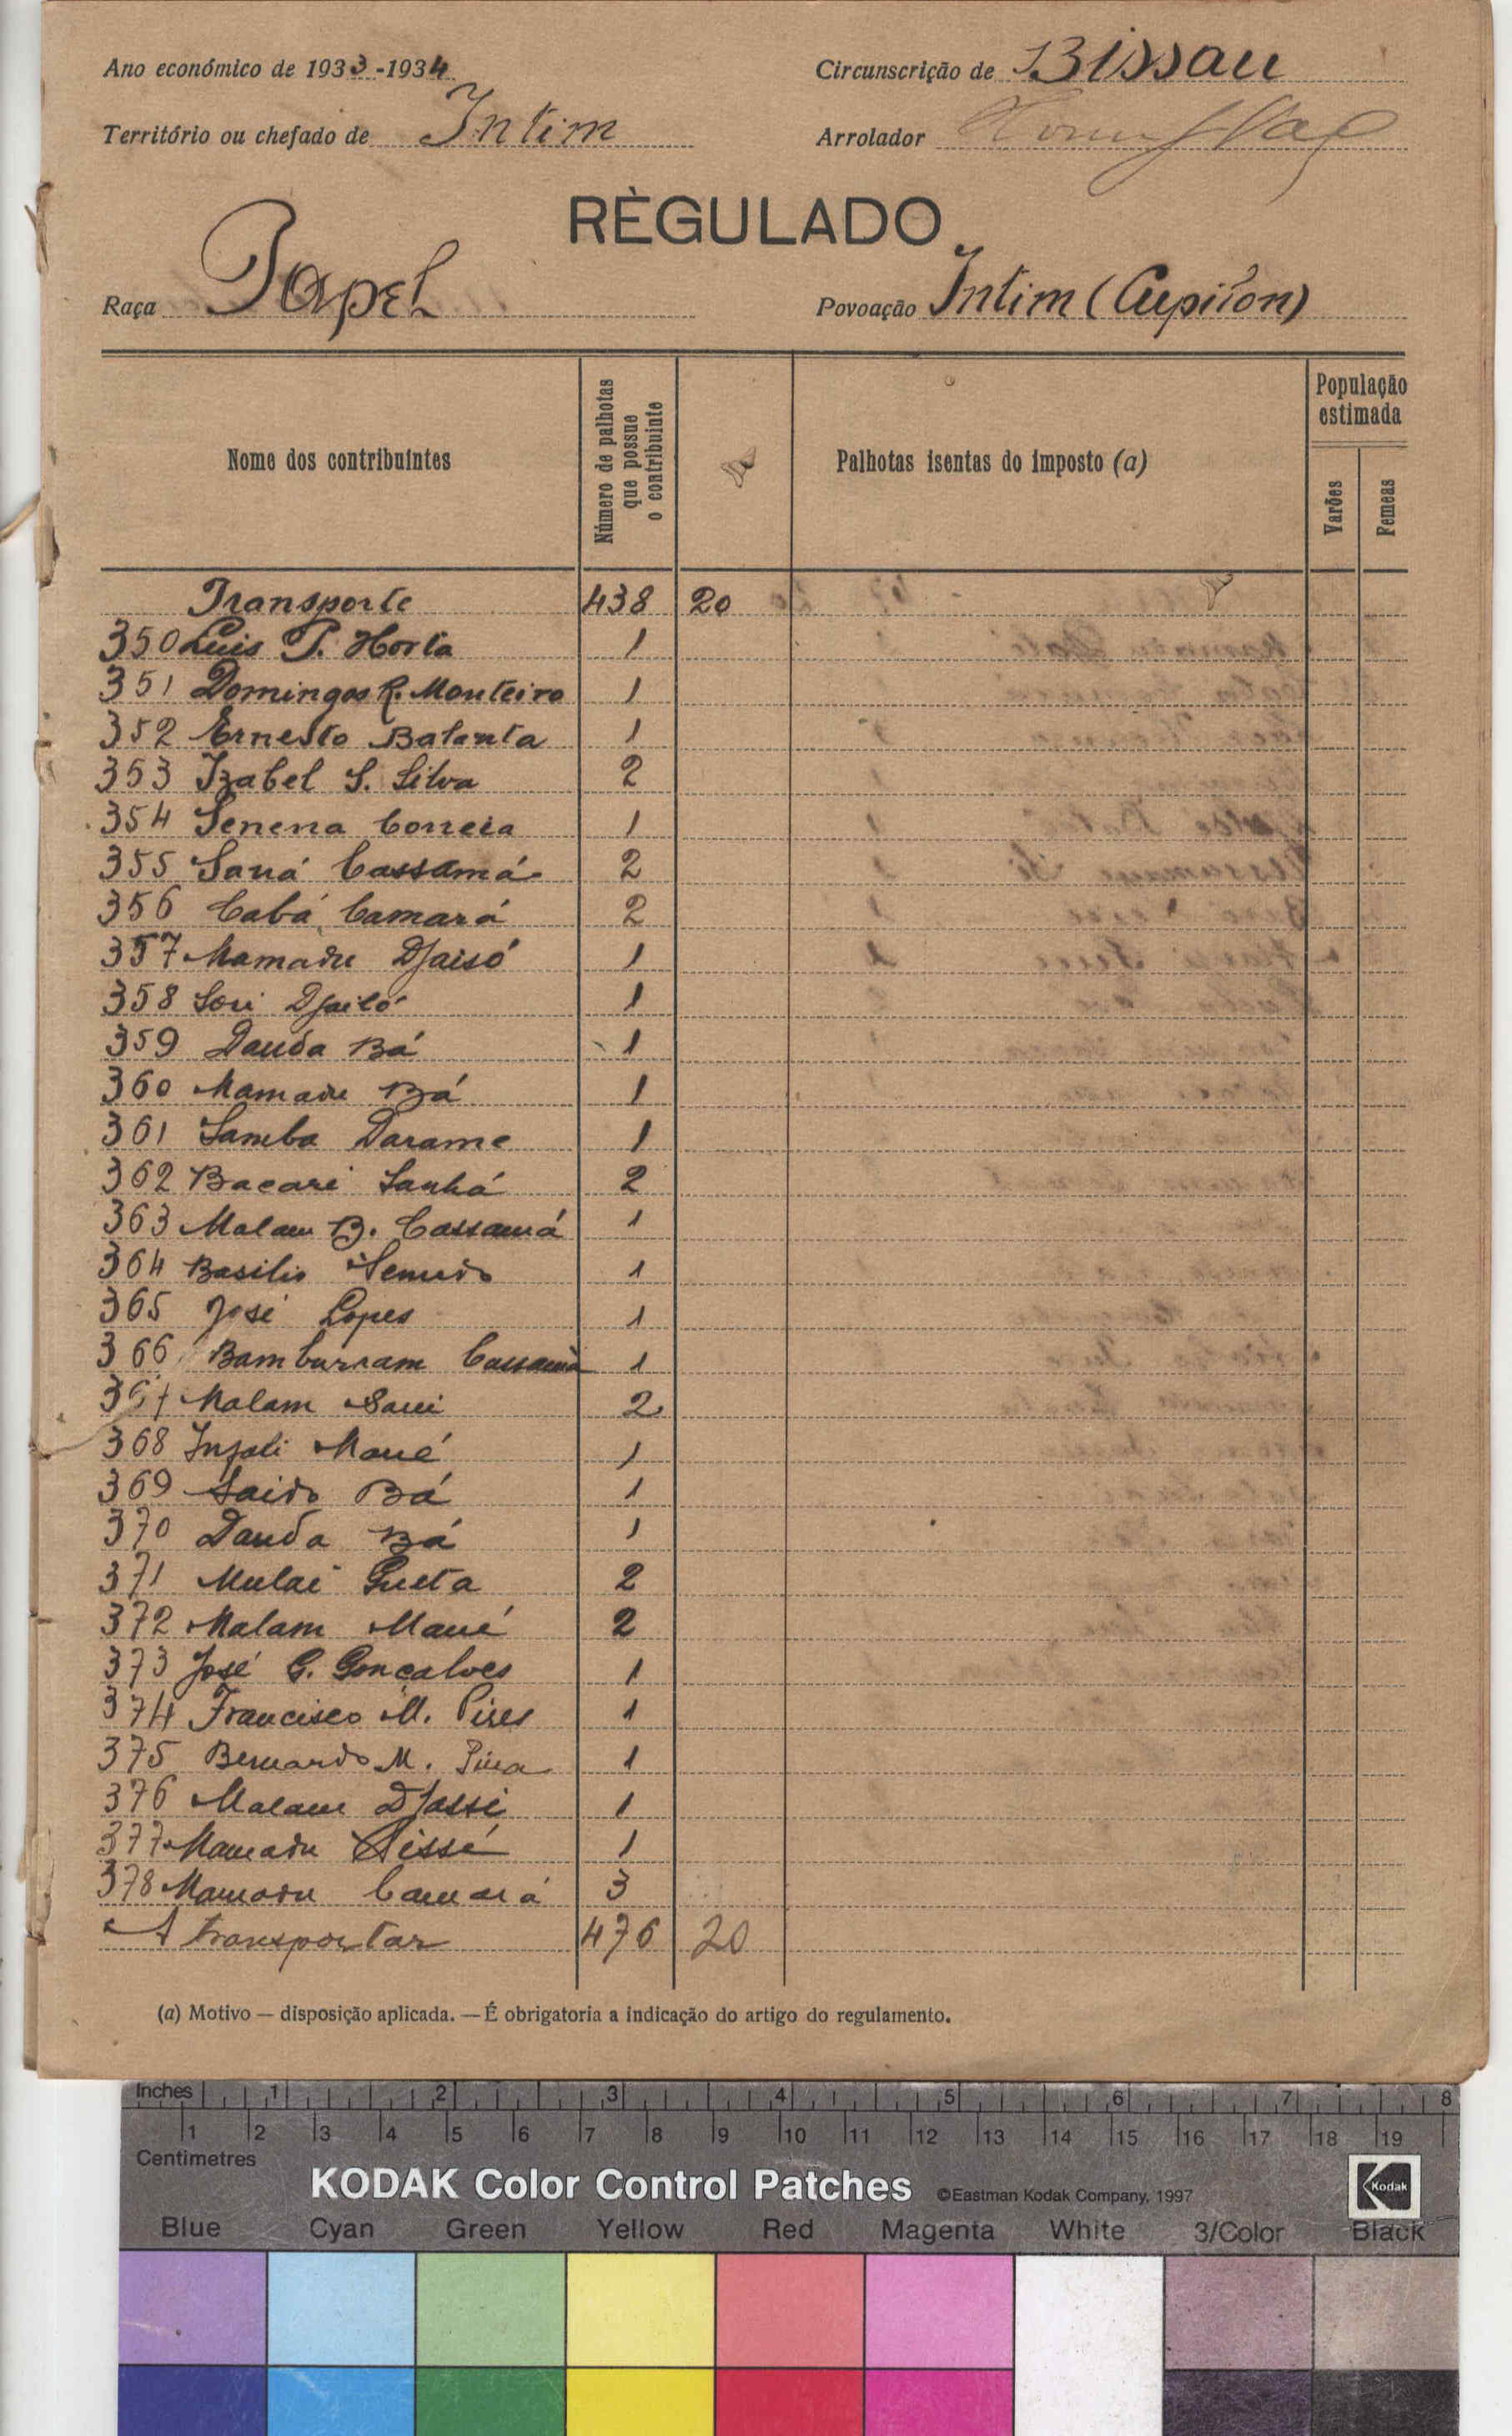 Ano económico de 1933-1934
Circunscrição de Bissau
Território ou chefado de Intim
Arrolador
RÈGULADO
Raça Papel
Povoação Intim (Cupilon)
Nome dos contribuintes
Número de palhotas que possue o contribuinte
Palhotas isentas do imposto (a)
População estimada
Varões
Femeas
Transporte 438 20
350 Luis P. Horta 1
351 Domingos R. Monteiro 1
352 Ernesto Balanta 1
353 Izabel S. Silva 2
354 Serena Correia 1
355 Saná Cassamá 2
356 Cabá Camará 2
357 Mamadu Djaisó 1
358 Sori Djaló 1
359 Dauda Bá 1
360 Mamadu Bá 1
361 Samba Darame 1
362 Bacari Sanhá 2
363 Malam B. Cassamá 1
364 Basilio Semedo 1
365 José Lopes 1
366 Bamburram Cassamá 1
367 Malam Sani 2
368 Injali Mané 1
369 Saido Bá 1
370 Dauda Bá 1
371 Mulai Gueta 2
372 Malam Mané 2
373 José G. Gonçalves 1
374 Francisco M. Pires 1
375 Bernardo M. Pina 1
376 Malam Djassi 1
377 Mamadu Sissé 1
378 Mamadu Camará 3
A transportar 476 20
(a) Motivo — disposição aplicada. — É obrigatoria a indicação do artigo do regulamento.
Inches 1 2 3 4 5 6 7 8
1 2 3 4 5 6 7 8 9 10 11 12 13 14 15 16 17 18 19
Centimetres
KODAK Color Control Patches ©Eastman Kodak Company, 1997 Kodak
Blue Cyan Green Yellow Red Magenta White 3/Color Black